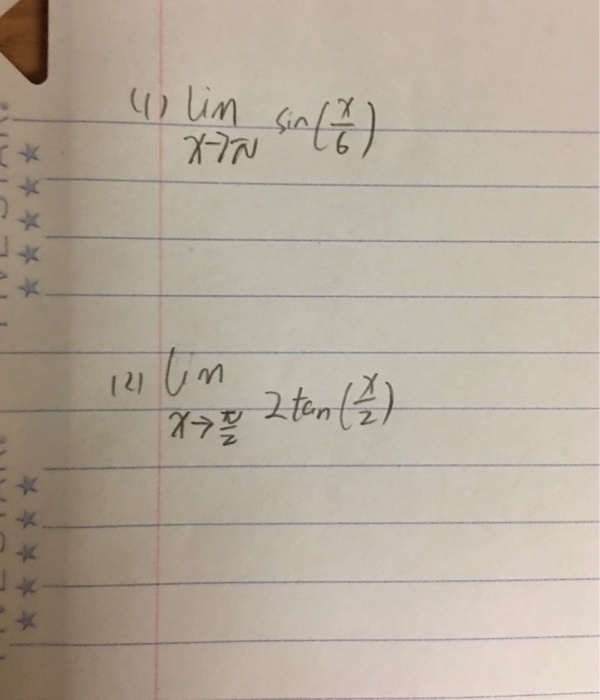 (1) lim x→π sin(x/6)
(2) lim x→π/2 2tan(x/2)